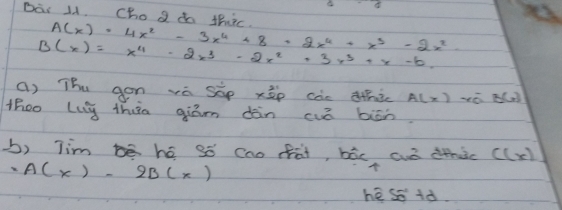 Bài 11. Cho 2 đa thức.
A(x) = 4x² - 3x⁴ + 8 + 2x⁴ + x³ - 2x²
B(x) = x⁴ - 2x³ - 2x² + 3x³ + x - 6.
a) Thu gọn và sắp xếp các đthức A(x) và B(x)
theo luỹ thừa giảm dần của biến.
b) Tìm hệ số cao nhất, bậc, của đthức C(x)
= A(x) - 2B(x)
hệ số td.